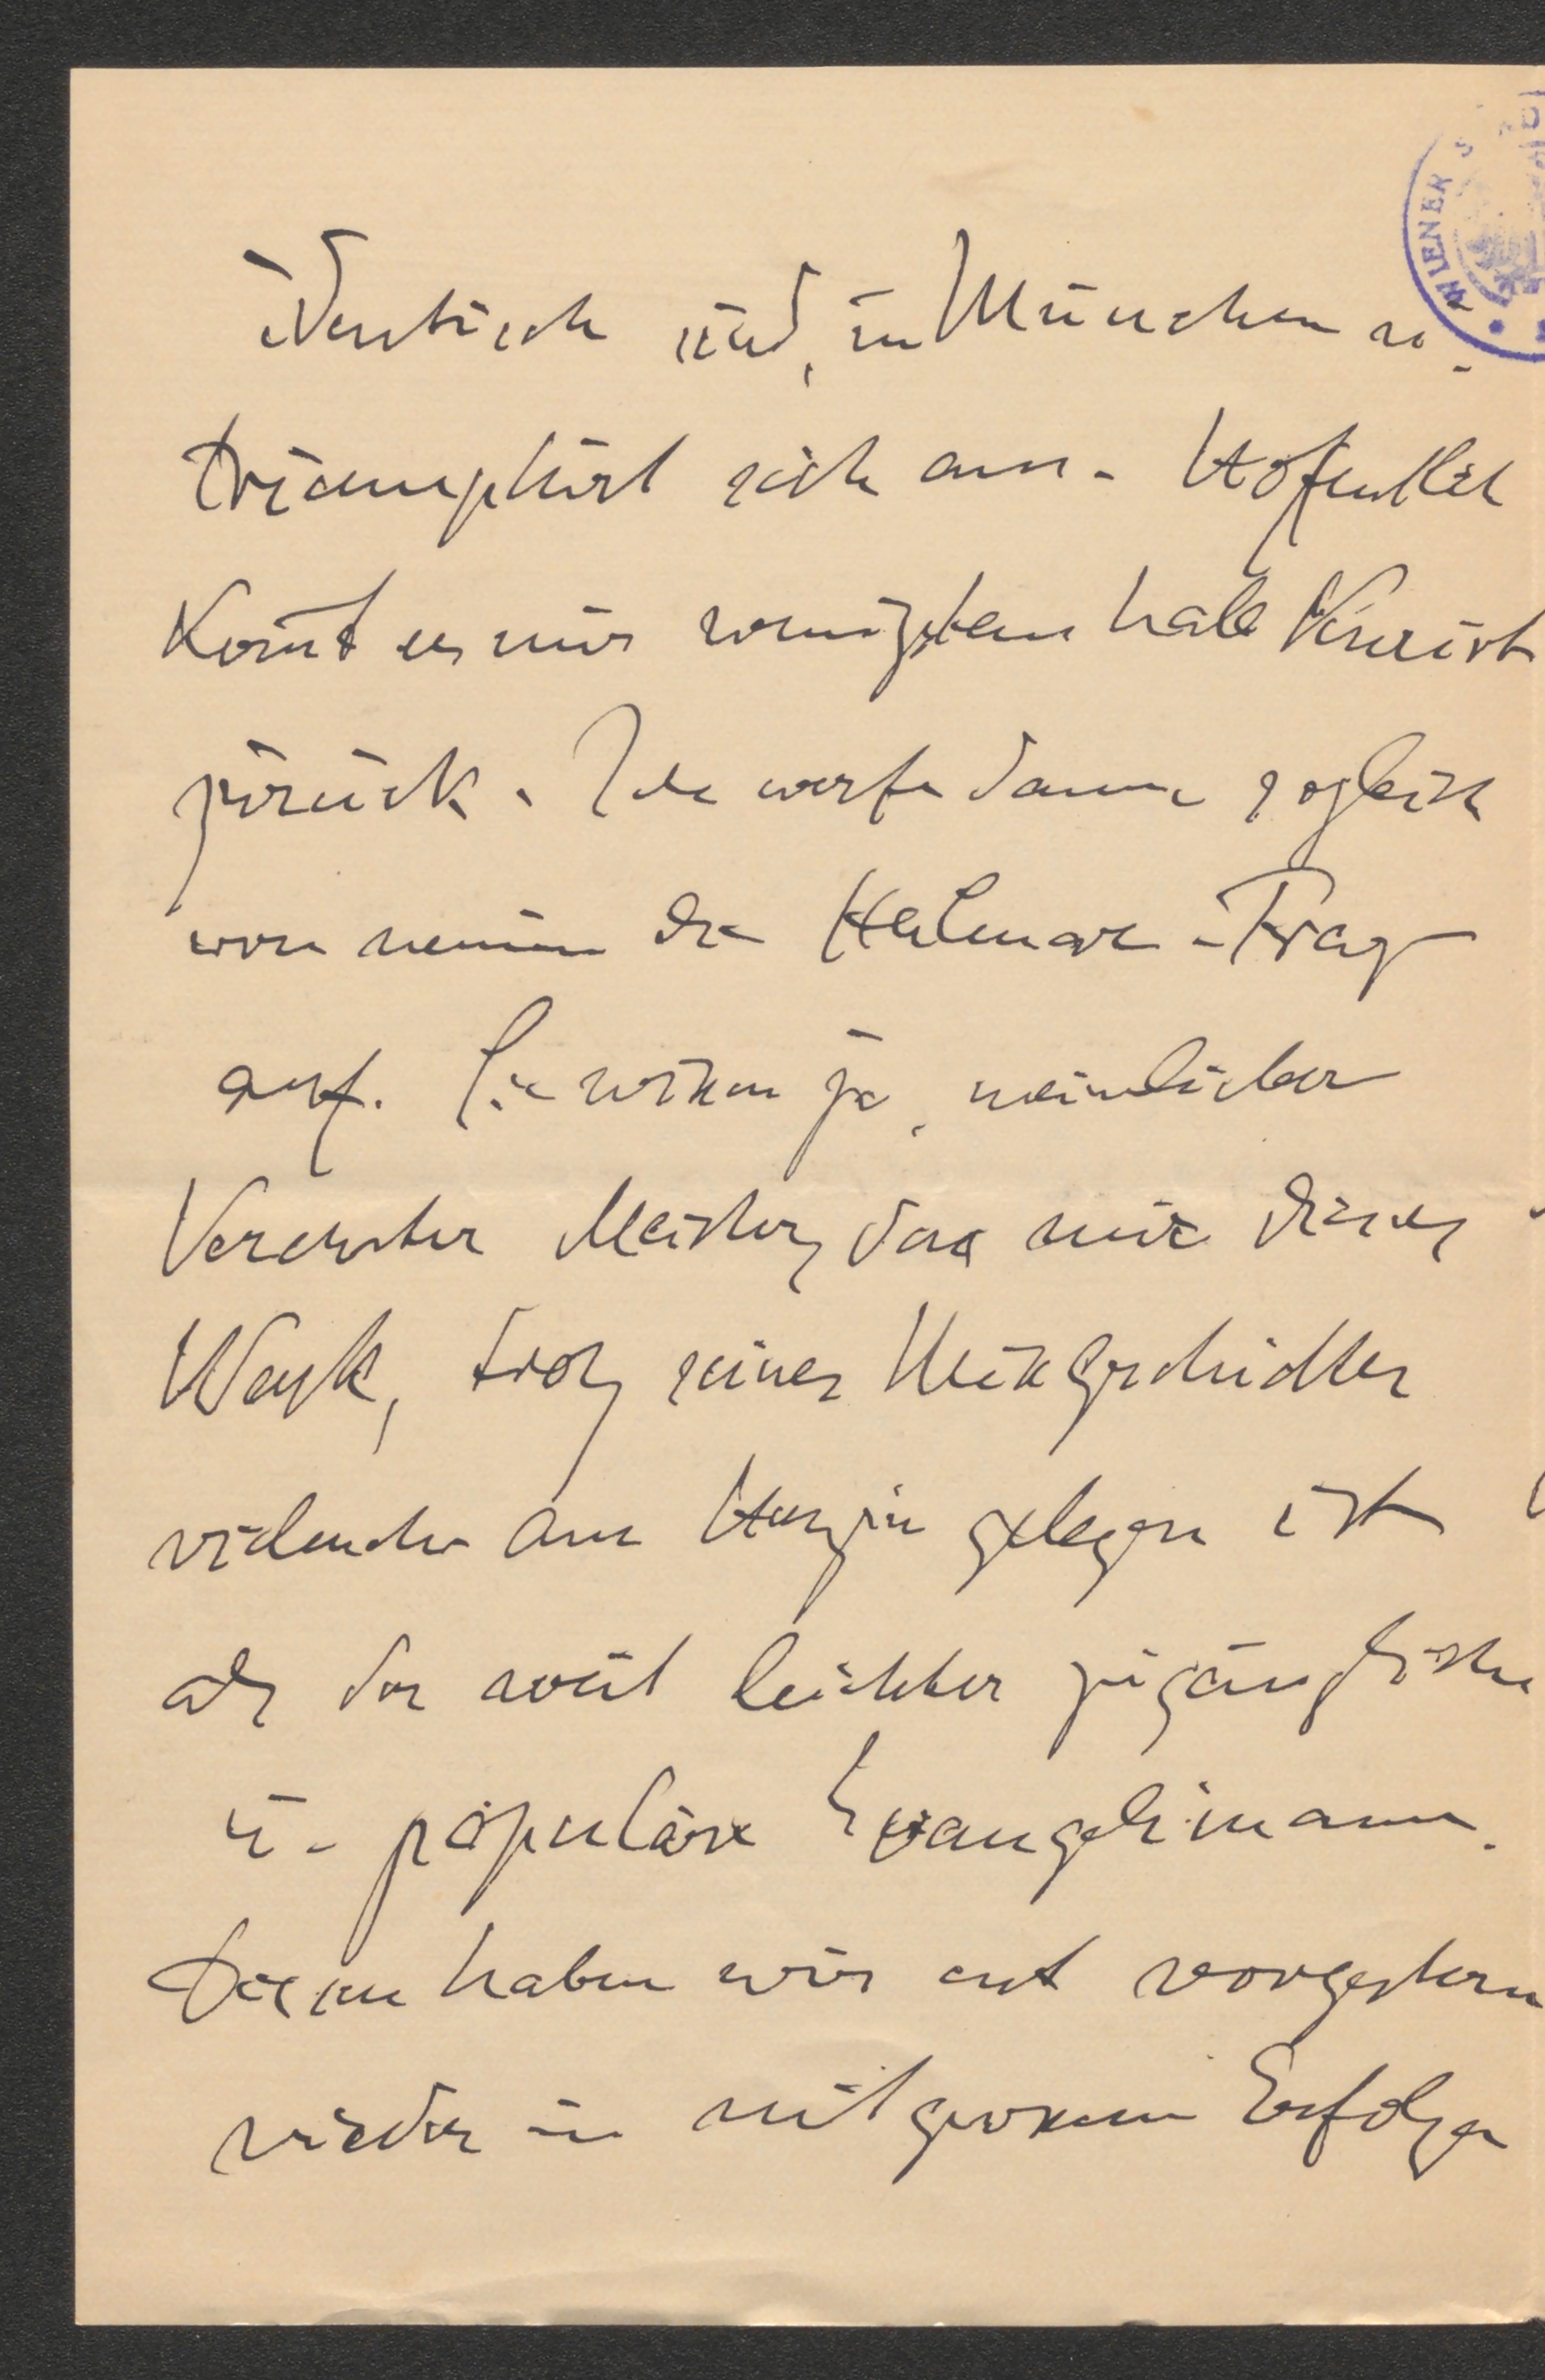 WIENER S
identisch sind, in München a.
triumphirt sich aus. Hoffentlich
komt es mir wenigstens halb
zurück. Ich werfe dann sogleich
von neuem die Halmar-Frage
auf. Sie wissen ja, mein lieber
Verehrter Meister, dass mir dieses
Werk, trotz seines Missgeschickes
vielmehr am Herzen gelegen ist
als der weit leichter zugängliche
u. populäre Evangelimann.
Denn haben wir erst vorgestern
wieder in mit grossem Erfolge